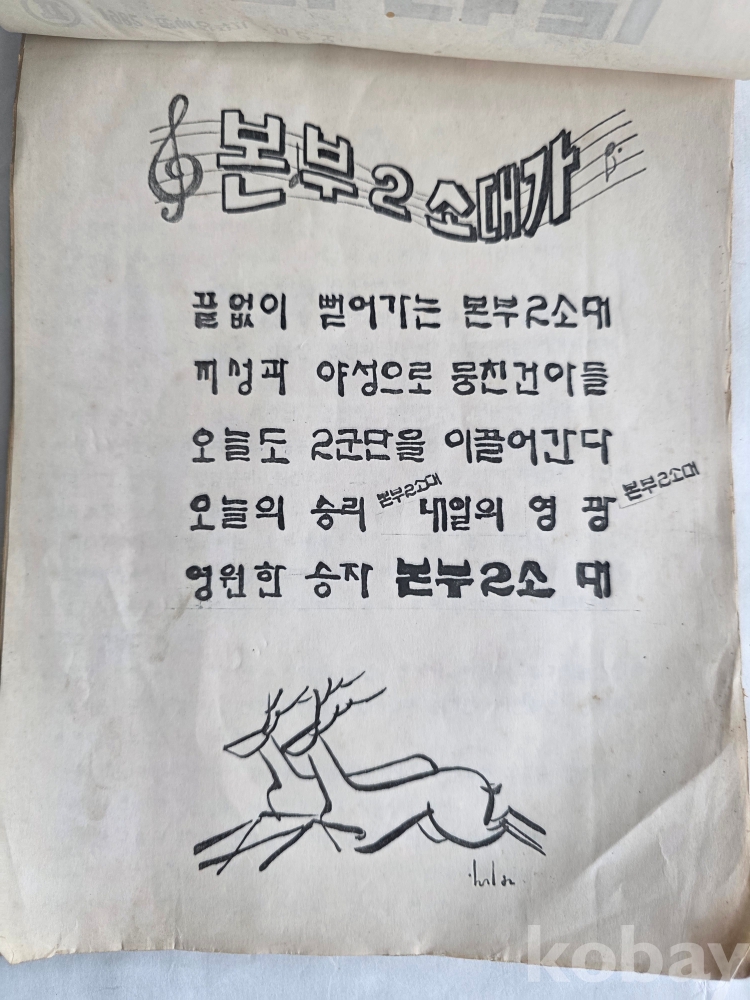 본부 2 소대가
끝없이 뻗어가는 본부2소대
야성으로 뭉친건아들
오늘도 2군단을 이끌어간다
오늘의 승리 본부2소대 내일의 영 광 본부2소대
영원한 승자 본부2소 대
kobay